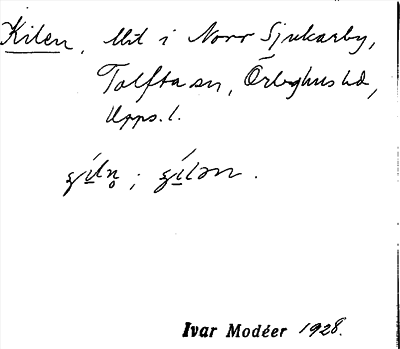 Kilen, Utt i Norr Sjukarby,
Tolfta sn, Örbyhus hd,
Upps. l.
Ivar Modéer 1928.